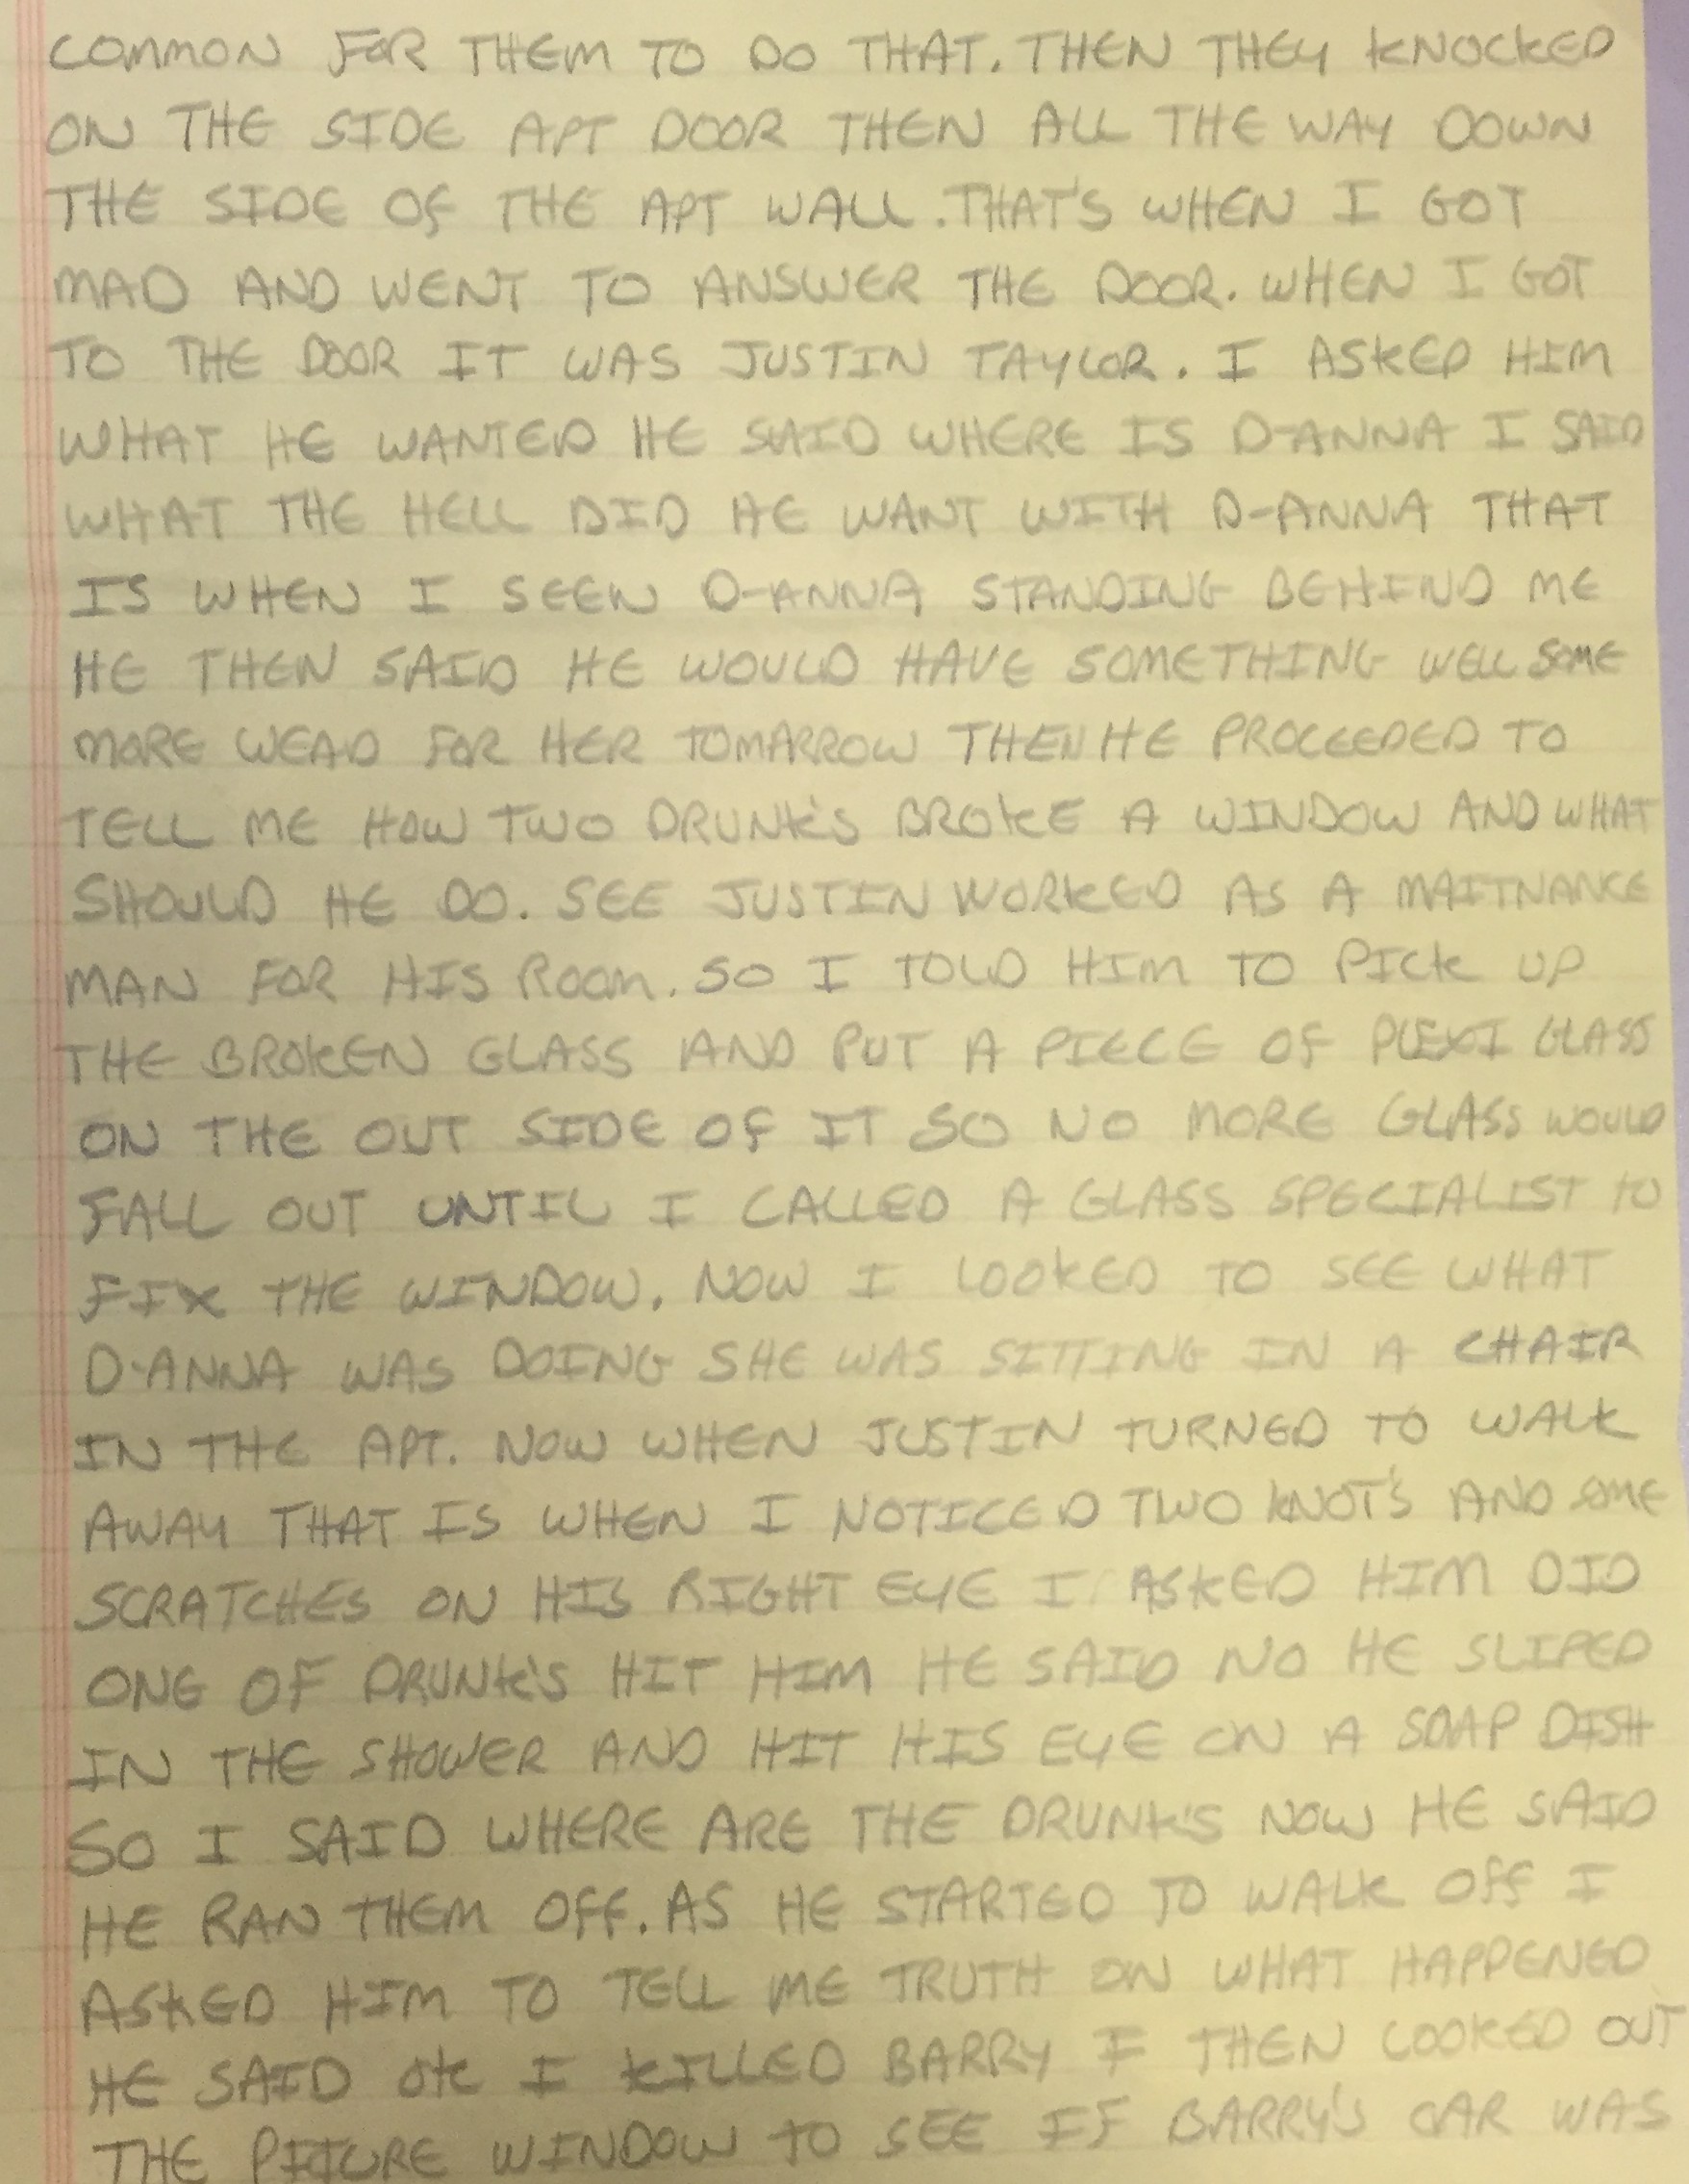 COMMON FOR THEM TO DO THAT. THEN THEY KNOCKED
ON THE SIDE APT DOOR THEN ALL THE WAY DOWN
THE SIDE OF THE APT WALL. THAT'S WHEN I GOT
MAD AND WENT TO ANSWER THE DOOR. WHEN I GOT
TO THE DOOR IT WAS JUSTIN TAYLOR. I ASKED HIM
WHAT HE WANTED HE SAID WHERE IS D-ANNA I SAID
WHAT THE HELL DID HE WANT WITH D-ANNA THAT
IS WHEN I SEEN D-ANNA STANDING BEHIND ME
HE THEN SAID HE WOULD HAVE SOMETHING WELL SOME
MORE WEAD FOR HER TOMARROW THEN HE PROCEEDED TO
TELL ME HOW TWO DRUNK'S BROKE A WINDOW AND WHAT
SHOULD HE DO. SEE JUSTIN WORKED AS A MAITNANCE
MAN FOR HIS ROOM. SO I TOLD HIM TO PICK UP
THE BROKEN GLASS AND PUT A PIECE OF PLEXI GLASS
ON THE OUT SIDE OF IT SO NO MORE GLASS WOULD
FALL OUT UNTIL I CALLED A GLASS SPECIALIST TO
FIX THE WINDOW. NOW I LOOKED TO SEE WHAT
D-ANNA WAS DOING SHE WAS SITTING IN A CHAIR
IN THE APT. NOW WHEN JUSTIN TURNED TO WALK
AWAY THAT IS WHEN I NOTICED TWO KNOT'S AND SOME
SCRATCHES ON HIS RIGHT EYE I ASKED HIM DID
ONE OF DRUNK'S HIT HIM HE SAID NO HE SLIPED
IN THE SHOWER AND HIT HIS EYE ON A SOAP DISH
SO I SAID WHERE ARE THE DRUNK'S NOW HE SAID
HE RAN THEM OFF. AS HE STARTED TO WALK OFF I
ASKED HIM TO TELL ME TRUTH ON WHAT HAPPENED
HE SAID OK I KILLED BARRY I THEN LOOKED OUT
THE PITCURE WINDOW TO SEE IF BARRY'S CAR WAS